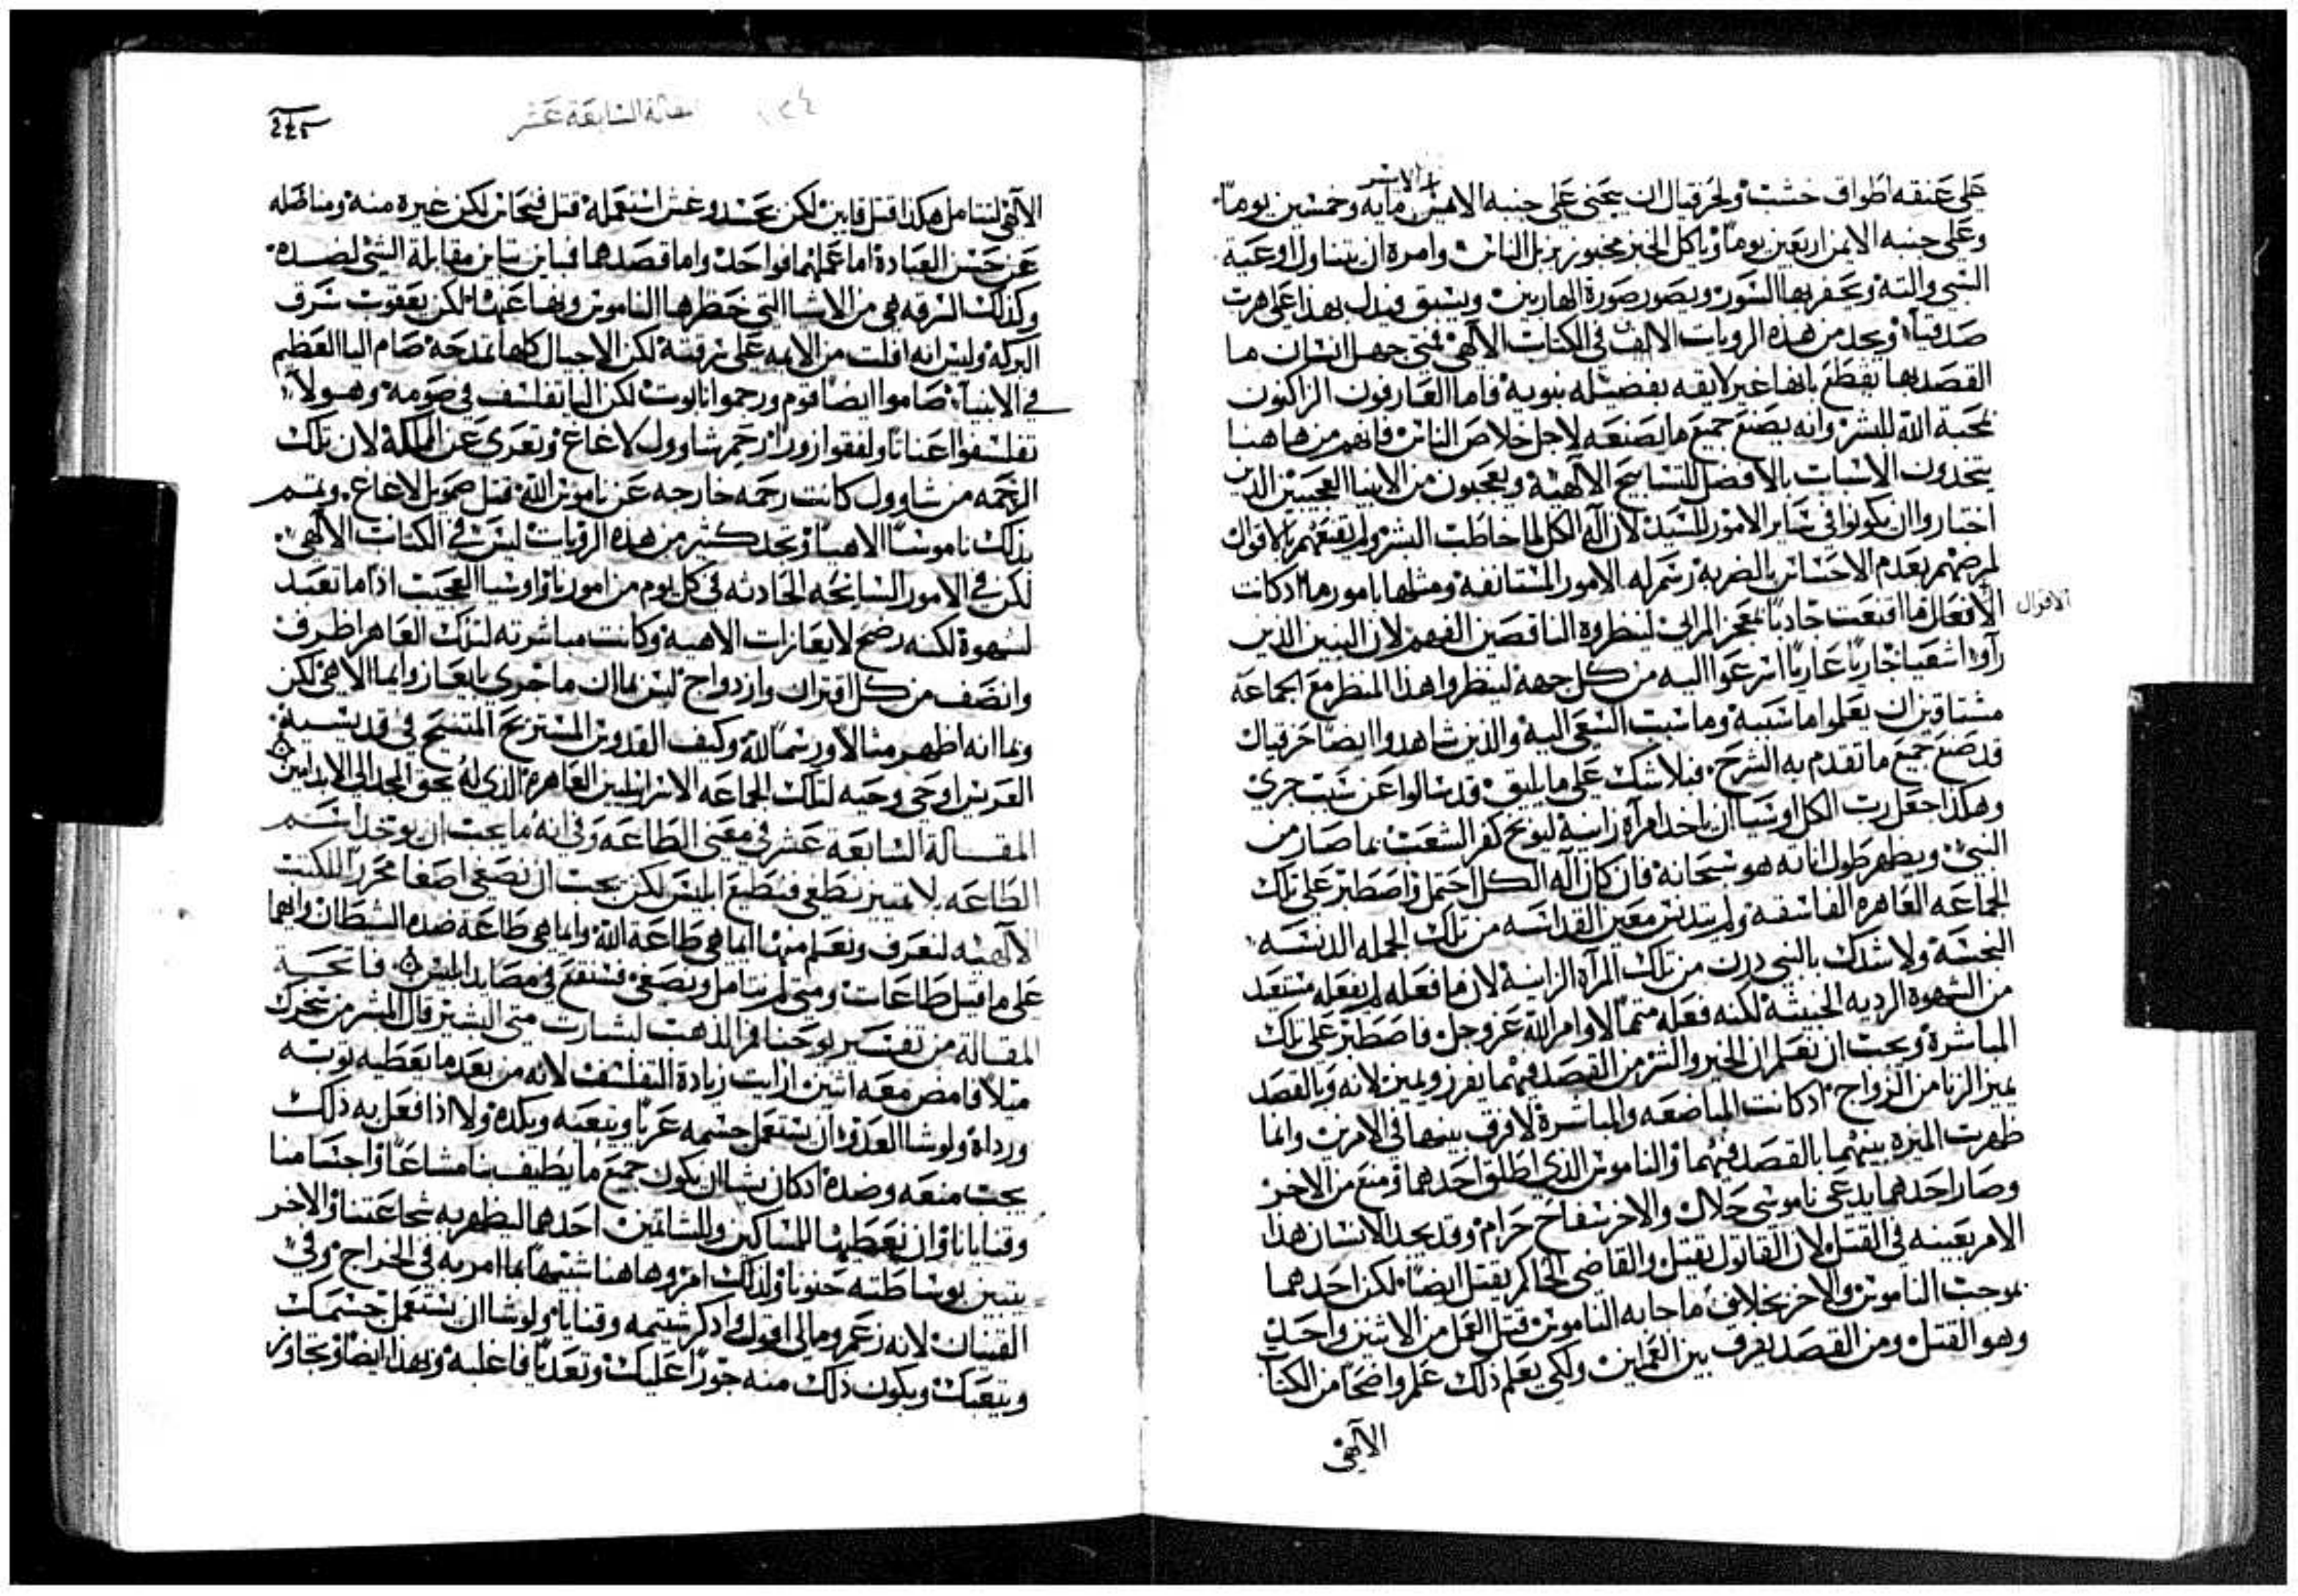 الايسر
على عنقه اطواق خشب ولحزقيال ان يجنى على جنبه الايمن مايه وخمسين يوما
وعلى جنبه الايمن اربعين يوما وياكل الخبز مخبوز بزبل الناس وامره ان يتناول اوعية
السبي والته ويحفر بها السور ويصور صورة الهاربين ويسبق فيدل بهذا على هرب
صدقيا ويجد من هذه الرويات الالف في الكتاب الالهي فمتى جهل انسان ما
القصد بها يقطع بانها غير لايقه بفضيله نبويه فاما العارفون الزاكون
محبة الله للبشر وانه يصنع جميع ما يصنعه لاجل خلاص الناس فانهم من هاهنا
يتخذون الاسباب بالافضل للتسابيح الالهية ويعجبون من الانبيا العجيبين الذين
اختاروا ان يكونوا في ساير الامور للسيد لان اله الكل لما خاطب البشر ولم يقنعهم بالاقوال
لمرضهم بعدم الاحساس بالضربه رسم له الامور المستانفة ومثلها بامورها اذ كانت
الاقوال
الافعال فما اقنعت حادثا لمعجز المراي لينظروه الناقصين الفهم لان النبيين الذين
رآوا اشعيا حاريا عاريا اسرعوا اليه من كل جهه لينظروا هذا المنظر مع الجماعه
مشتاقين ان يعلموا ما سببه وما سبب السعي اليه والذين شاهدوا ايضا حزقيال
قد صنع جميع ما تقدم به الشرح فلا شك على ما يليق قد سالوا عن سبب جري
وهكذا جعل رب الكل اوشيا ان ياخذ امرآه زانيه ليوبخ كفر الشعب بما صار من
النبي ويظهر طول اناته هو سبحانه فان كان اله الكل احتمل واصطبر على تلك
الجماعه العاهره الفاسقه ولم يتدنس معين القداسه من تلك الجمله الدنسه
النجسه ولا شدك بالنبي درن من تلك المرآه الزانيه لان ما فعله لم يفعله مستعبد
من الشهوة الرديه الخبيثه لكنه فعله متمما لاوامر الله عز وجل فاصطبر على تلك
المباشرة ويجب ان نعلم ان الخير والشر من القصد فيهما يفرز ويميز لانه وبالقصد
يميز الزنا من الزواج اذ كانت المباضعه والمباشرة لا فرق بينهما في الامرين وانما
ظهرت الميزه بينهما بالقصد فيهما والناموس الذي اطلق احدهما ومنع من الاخر
وصار احدهما يدعى ناموسي حلال والاخر سفاح حرام وقد يجد الانسان هذا
الامر بعينه في القتل لان القاتول يقتل والقاضي الحاكم يقتل ايضا لكن احدهما
بموجب الناموس والاخر بخلاف ما جا به الناموس قتل العمل من الاثنين واحد
وهو القتل ومن القصد يفرق بين العملين ولكي يعلم ذلك علم واضحا من الكتاب
الالهي
245
مقالة السابعة عشر
الالهي لنتامل هكذا قتل قايين لكن بحسد وغش استعمله قتل فنحاس لكن غيره منه ومناضله
عن حسن العبادة اما عملهما فواحد واما قصدهما فباين تباين مقابلة الشي لضده
وكذلك السرقه هي من الاشيا التي حظرها الناموس ونها عنها لكن يعقوب سرق
البركة وليس انه افلت من الايمه على سرقته لكن الاجيال كلها تمدحه صام اليا العظيم
في الانبيآ صاموا ايضا قوم ورجموا نابوت لكن اليا تفلسف في صومه وهولآ
تفلسفوا عنانا ولفقوا زورا رحم شاوول لاغاغ وتعرى عن المملكة لان تلك
الرحمه من شاوول كانت رحمه خارجه عن ناموس الله قتل صمويل لاغاغ ويتمم
بذلك ناموسا الاهيا وتجد كثير من هذه الرويات ليس في الكتاب الالهي
لكن في الامور السانحه الحادثه في كل يوم من امورنا واوشيا العجيب اذا ما تعبد
لشهوة لكنه رضخ لايعازات الاهيه وكانت مباشرته لتلك العاهر اظرف
وانضف من كل اقتران وازدواج ليس بما ان ما جري بايعاز وايما الاهي لكن
وبما انه اظهر مثالا ورسما لله وكيف القدوس المستريح المتسبح في قديسيه
العريس اوحى وحيه لتلك الجماعه الاسراييليين العاهره الذي له يحق المجد الى الابد امين
المقالة السابعة عشر في معنى الطاعه وفي انه ما يجب ان يوخذ اسم
الطاعه بلا تمييز نطغي فنطيع ابليس لكن يجب ان نصغي اصغا محررا للكتب
الالهيه لنعرف ونعلم منها ايما هي طاعة الله وايما هي طاعة ضده الشيطان وايهما
على ما قيل طاعات ومتى لم نتامل ونصغي فسنقع في مصايد ابليس فاتحة
المقالة من تفسير يوحنا فم الذهب لبشارت متى البشير قال المبشر من سخرك
ميلا فامض معه اثنين ارايت زيادة التفلسف لانه من بعد ما يعطيه توبه
ورداه ولو شا العدو ان يستعمل جسمه عريا ويتعبه ويكده ولا اذا فعل به ذلك
يجب منعه وضده اذ كان يشا ان يكون جميع ما يطيف بنا مشاعا واجسامنا
وقنايانا وان نعطيها للمساكين وللشاتمين احدهما ليظهر به شجاعتنا والاخر
يتبين بوساطته حنونا ولذلك امر وهاهنا شتيمها بما امر به في الخراج وفي
القنيان لانه زعم وما لي اقول واذكر شتيمه وقنايا ولو شا ان يستعمل جسمك
ويتعبك ويكون ذلك منه جورا عليك وتعديا فاغلبه وبهذا ايضا وتجاوز